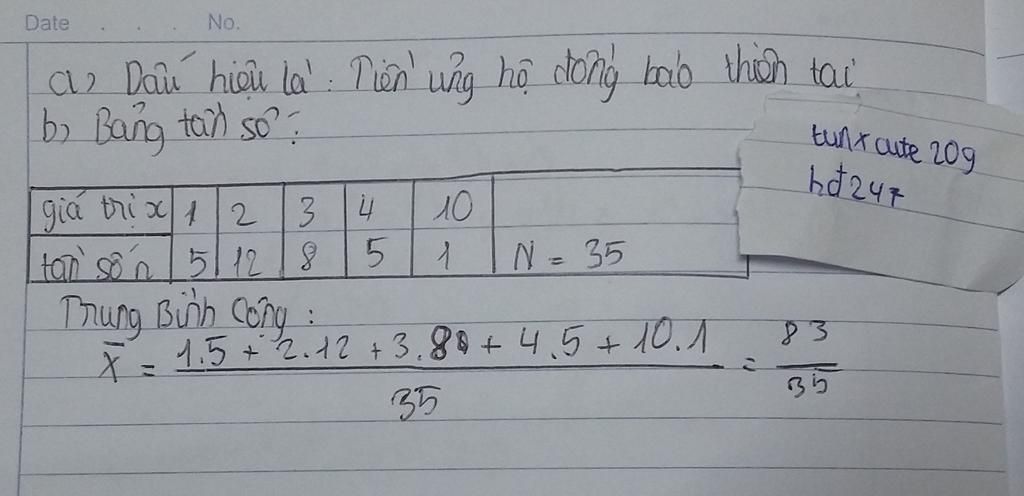 Date . . . No.
a) Dấu hiệu là: Tiền ủng hộ đồng bào thiên tai
b) Bảng tần số:
tunx cute 209
hđ 247
giá trị x 1 2 3 4 10
tần số n 5 12 8 5 1 N = 35
Trung Bình Cộng:
X̄ = 1.5 + 2.12 + 3.8 + 4.5 + 10.1 / 35 = 83 / 35